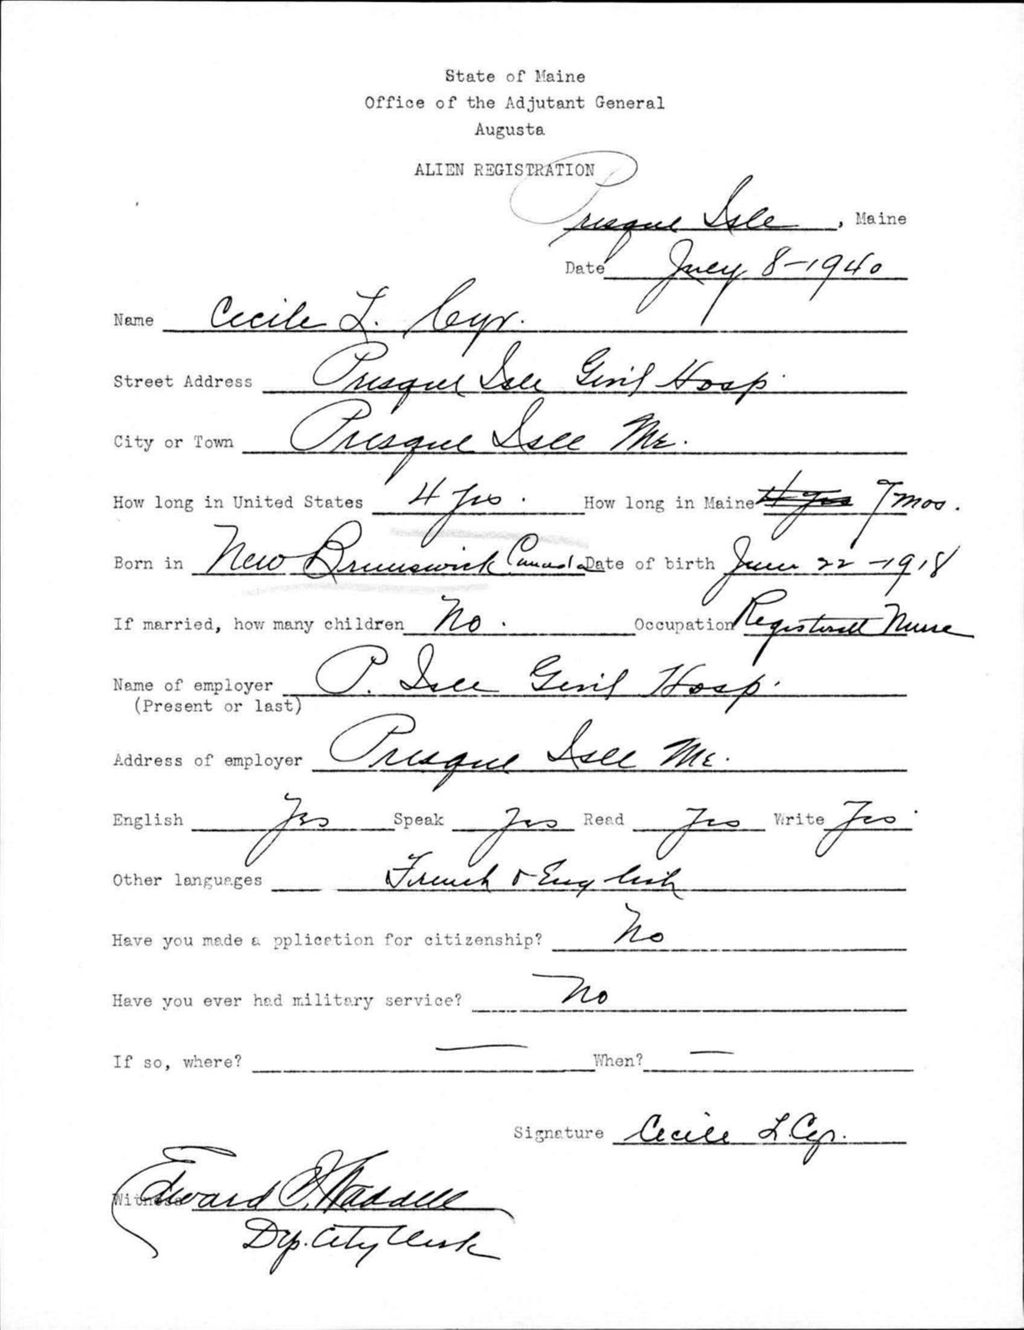 State of Maine
Office of the Adjutant General
Augusta
ALIEN REGISTRATION
Presque Isle, Maine
Date July 8-1940
Name Cecile L. Cyr.
Street Address Presque Isle Gen'l Hosp.
City or Town Presque Isle Me.
How long in United States 4 Yrs. How long in Maine 4 Yrs 7 mos.
Born in New Brunswick Canada Date of birth June 22-1918
If married, how many children No. Occupation Registered Nurse
Name of employer P. Isle Gen'l Hosp.
(Present or last)
Address of employer Presque Isle Me.
English Yes Speak Yes Read Yes Write Yes.
Other languages French & English
Have you made a pplication for citizenship? No
Have you ever had military service? No
If so, where? — When? —
Signature Cecile L Cyr.
Witness Edward Waddell
Dep. City Clerk